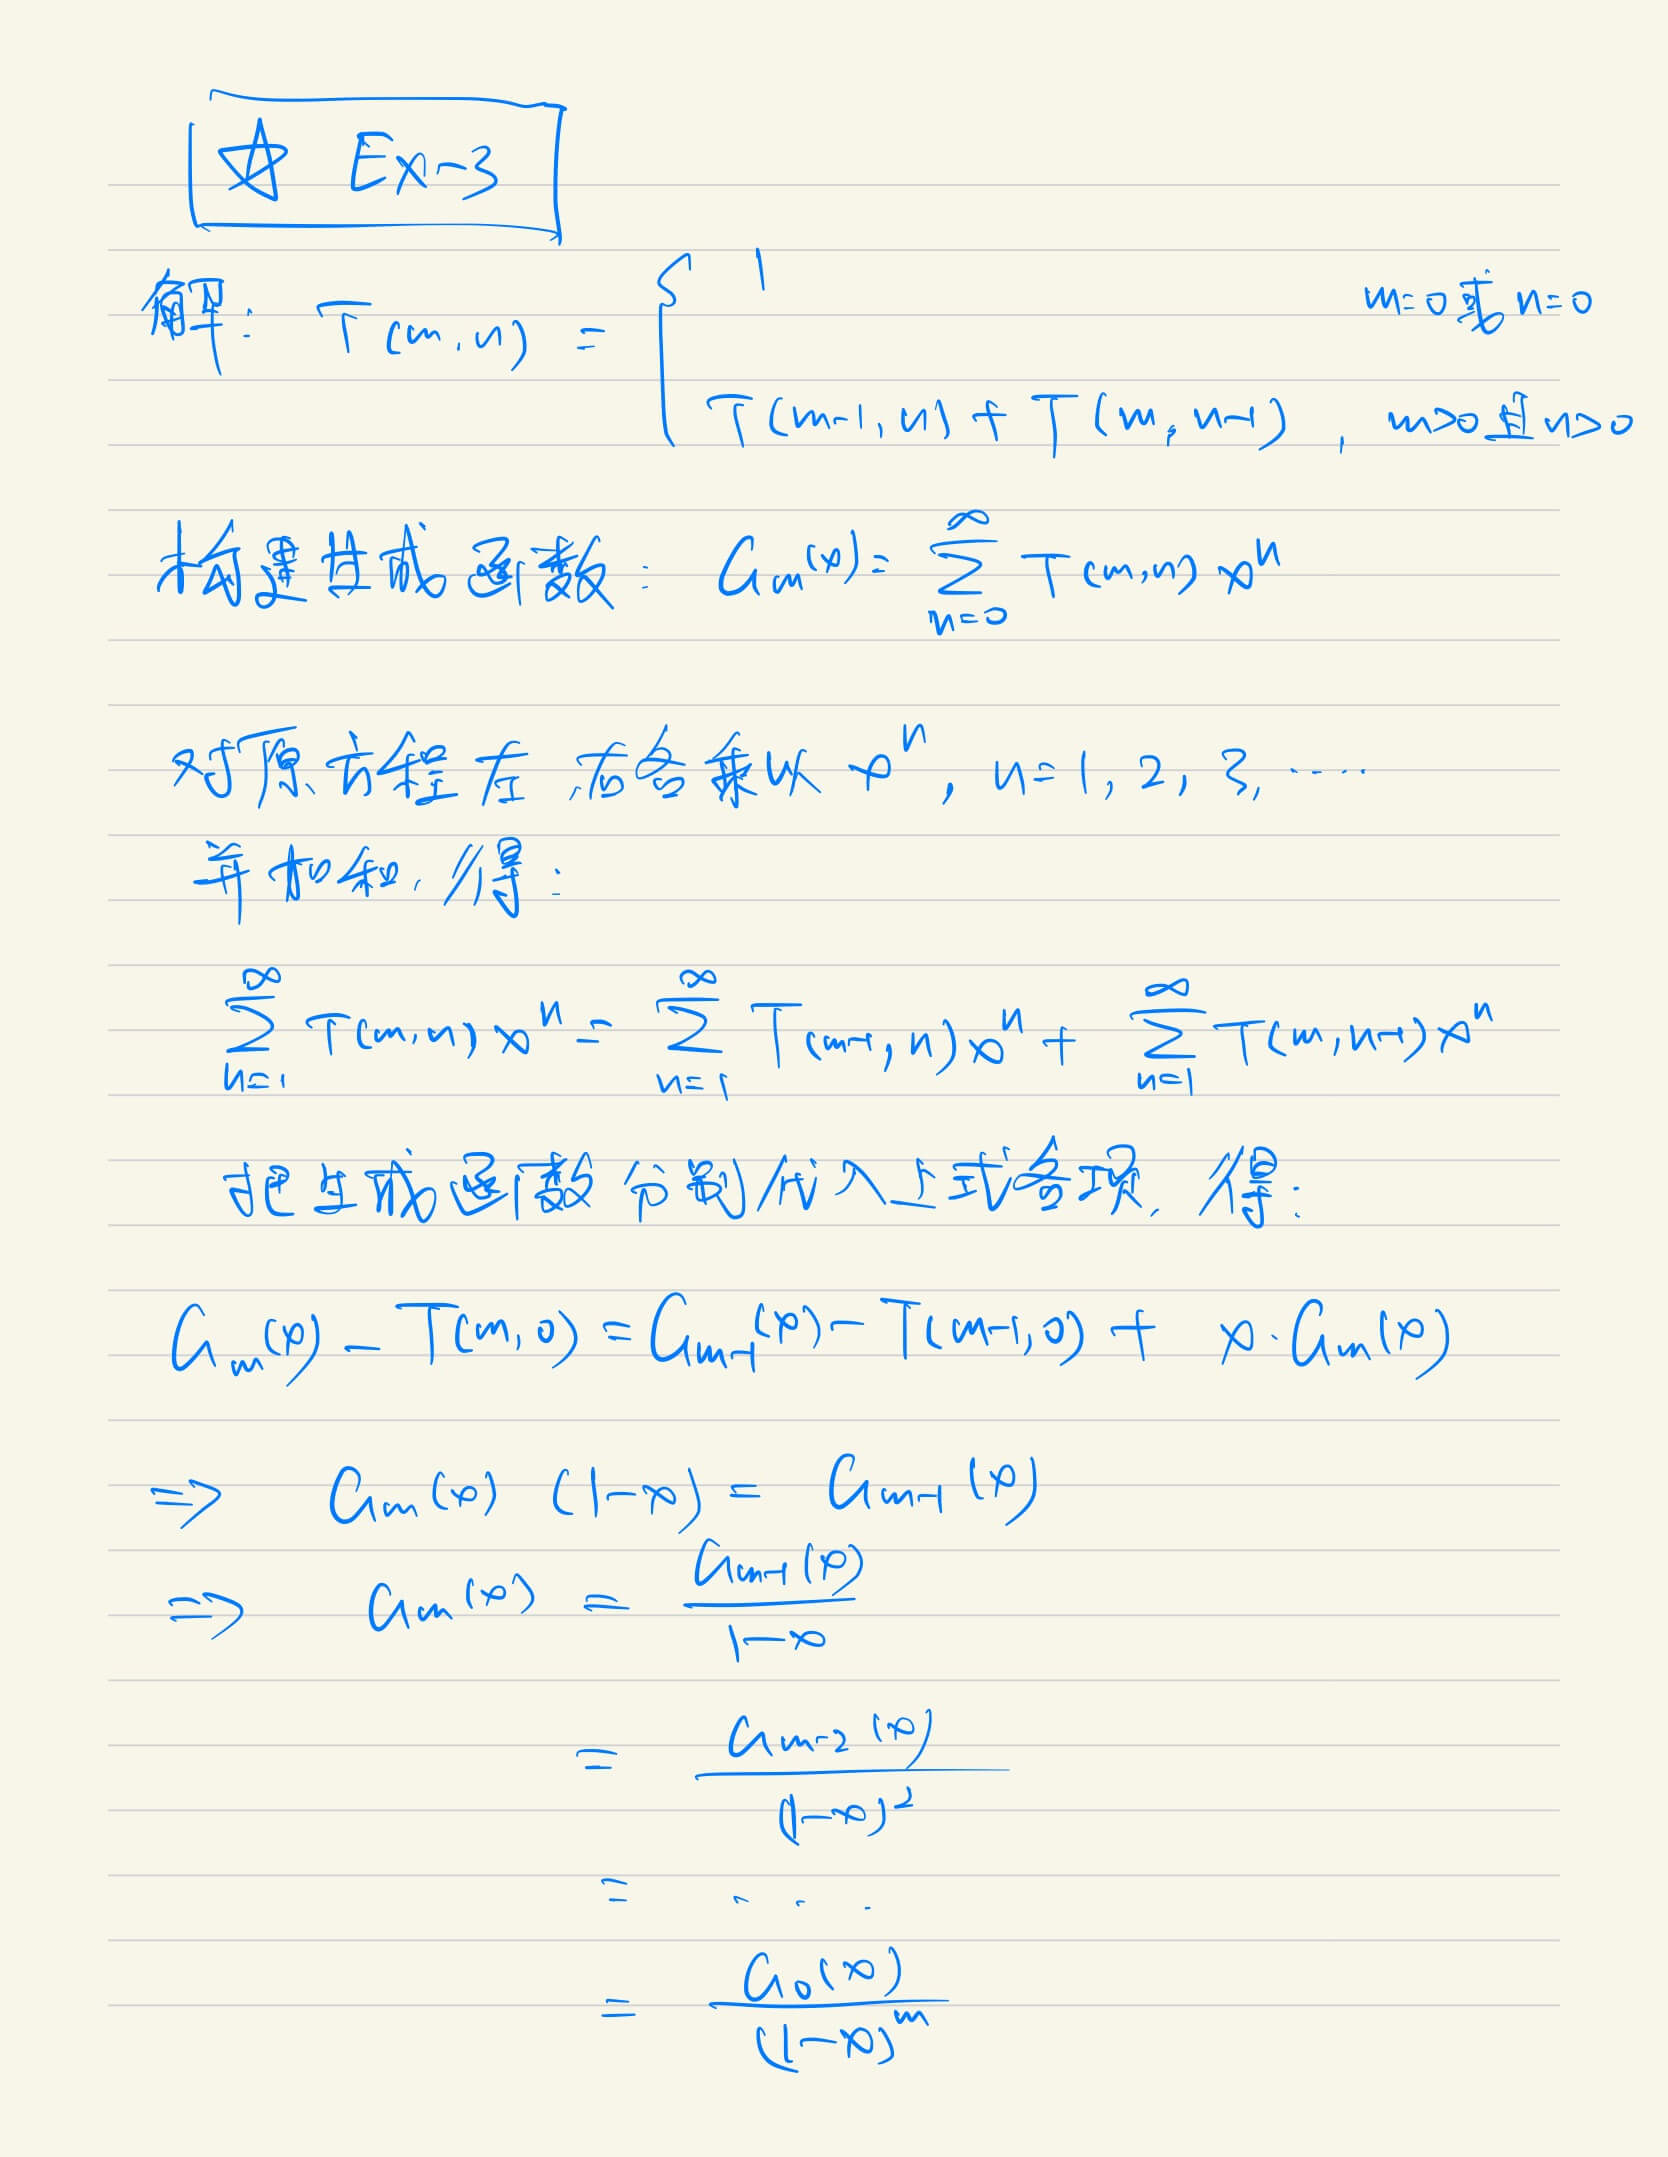 ☆ Ex-3
解: T(m,n) = { 1 m=0或n=0
T(m-1,n) + T(m,n-1) , m>0且n>0
构建生成函数: Gm(x) = ∑_{n=0}^{∞} T(m,n) x^n
对原方程左、右各乘以 x^n, n=1, 2, 3, ……
并加和, 得:
∑_{n=1}^{∞} T(m,n) x^n = ∑_{n=1}^{∞} T(m-1,n) x^n + ∑_{n=1}^{∞} T(m,n-1) x^n
把生成函数分别代入上式各项, 得:
Gm(x) - T(m,0) = Gm-1(x) - T(m-1,0) + x·Gm(x)
=> Gm(x) (1-x) = Gm-1(x)
=> Gm(x) = Gm-1(x) / (1-x)
= Gm-2(x) / (1-x)^2
= . . .
= G0(x) / (1-x)^m